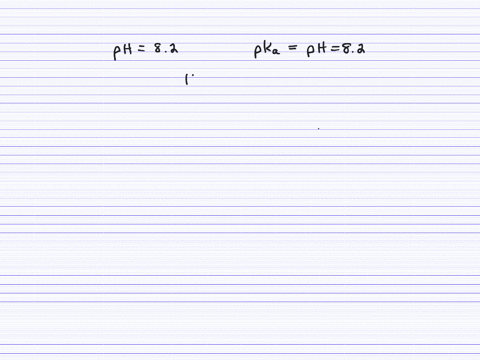 pH = 8.2 pka = pH = 8.2